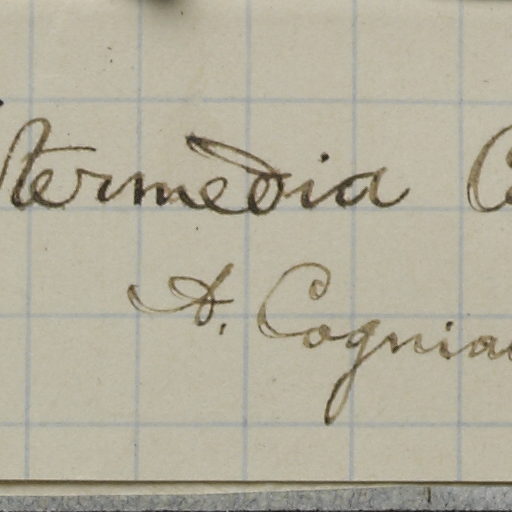 termedia C
A. Cognia